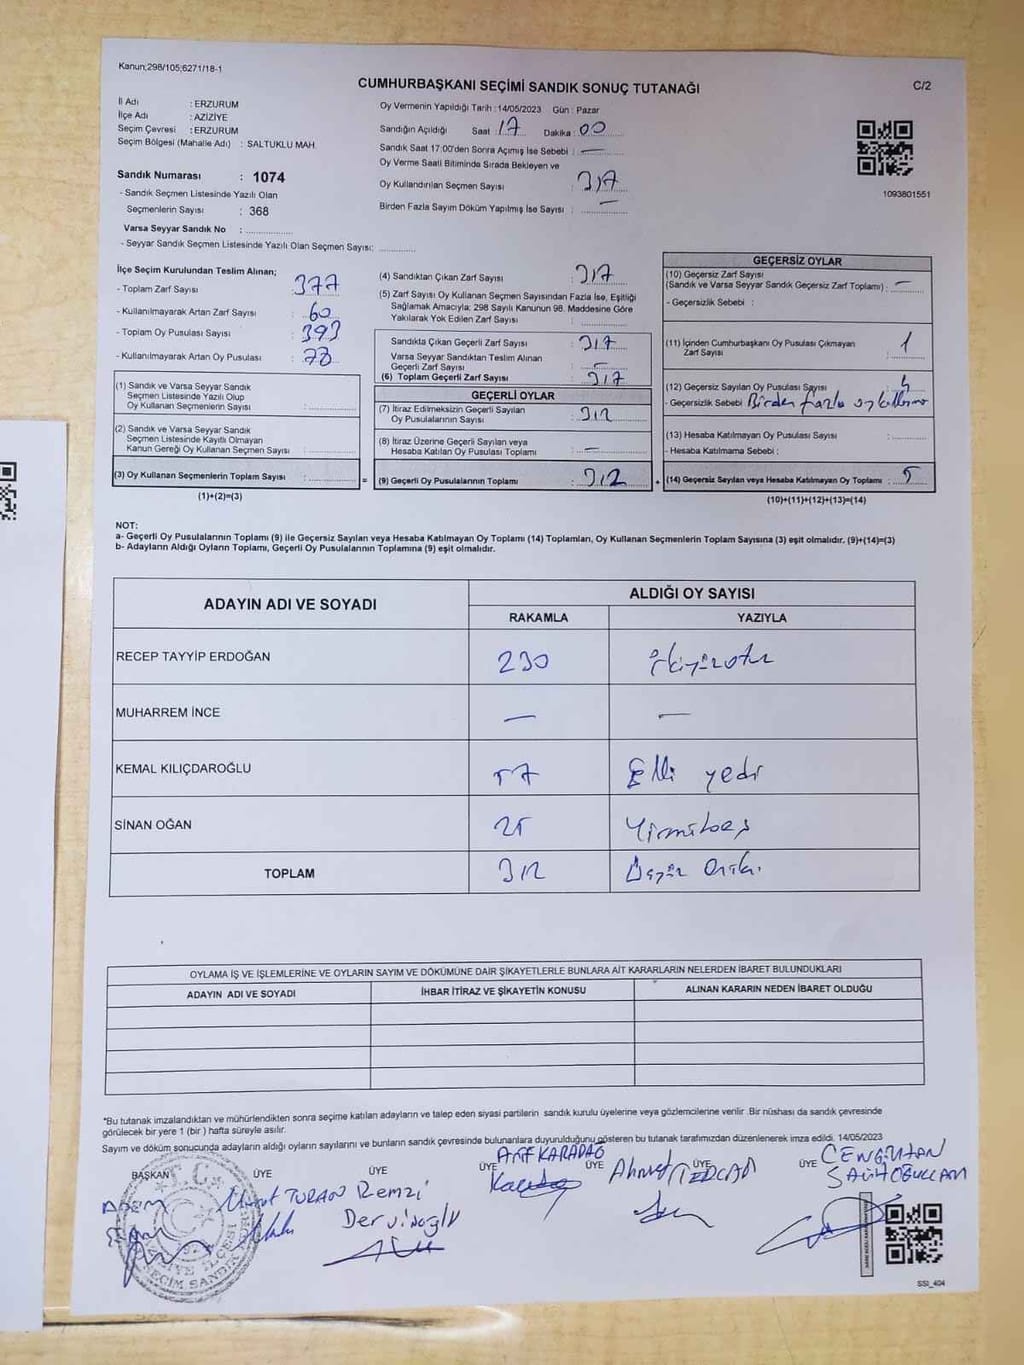 Kanun;298/105;6271/18-1
CUMHURBAŞKANI SEÇİMİ SANDIK SONUÇ TUTANAĞI
C/2
İl Adı : ERZURUM
İlçe Adı : AZİZİYE
Seçim Çevresi : ERZURUM
Seçim Bölgesi (Mahalle Adı) : SALTUKLU MAH.
Sandık Numarası : 1074
- Sandık Seçmen Listesinde Yazılı Olan
Seçmenlerin Sayısı : 368
Varsa Seyyar Sandık No :
- Seyyar Sandık Seçmen Listesinde Yazılı Olan Seçmen Sayısı:
Oy Vermenin Yapıldığı Tarih :14/05/2023 Gün : Pazar
Sandığın Açıldığı Saat : 17 Dakika : 00
Sandık Saat 17:00'den Sonra Açımış İse Sebebi : —
Oy Verme Saati Bitiminde Sırada Bekleyen ve
Oy Kullandırılan Seçmen Sayısı : 317
Birden Fazla Sayım Döküm Yapılmış İse Sayısı : —
1093801551
İlçe Seçim Kurulundan Teslim Alınan;
- Toplam Zarf Sayısı : 377
- Kullanılmayarak Artan Zarf Sayısı : 60
- Toplam Oy Pusulası Sayısı : 393
- Kullanılmayarak Artan Oy Pusulası :
(1) Sandık ve Varsa Seyyar Sandık
Seçmen Listesinde Yazılı Olup
Oy Kullanan Seçmenlerin Sayısı :
(2) Sandık ve Varsa Seyyar Sandık
Seçmen Listesinde Kayıtlı Olmayan
Kanun Gereği Oy Kullanan Seçmen Sayısı :
(3) Oy Kullanan Seçmenlerin Toplam Sayısı :
(1)+(2)=(3)
(4) Sandıktan Çıkan Zarf Sayısı : 317
(5) Zarf Sayısı Oy Kullanan Seçmen Sayısından Fazla İse, Eşitliği
Sağlamak Amacıyla; 298 Sayılı Kanunun 98. Maddesine Göre
Yakılarak Yok Edilen Zarf Sayısı :
Sandıkta Çıkan Geçerli Zarf Sayısı : 317
Varsa Seyyar Sandıktan Teslim Alınan
Geçerli Zarf Sayısı : —
(6) Toplam Geçerli Zarf Sayısı : 317
GEÇERLİ OYLAR
(7) İtiraz Edilmeksizin Geçerli Sayılan
Oy Pusulalarının Sayısı : 312
(8) İtiraz Üzerine Geçerli Sayılan veya
Hesaba Katılan Oy Pusulası Toplamı : —
= (9) Geçerli Oy Pusulalarının Toplamı : 312
GEÇERSİZ OYLAR
(10) Geçersiz Zarf Sayısı
(Sandık ve Varsa Seyyar Sandık Geçersiz Zarf Toplamı) : —
- Geçersizlik Sebebi :
(11) İçinden Cumhurbaşkanı Oy Pusulası Çıkmayan
Zarf Sayısı : 1
(12) Geçersiz Sayılan Oy Pusulası Sayısı : 4
- Geçersizlik Sebebi : Birden fazla oy kullanma
(13) Hesaba Katılmayan Oy Pusulası Sayısı :
- Hesaba Katılmama Sebebi :
+ (14) Geçersiz Sayılan veya Hesaba Katılmayan Oy Toplamı : 5
(10)+(11)+(12)+(13)=(14)
NOT:
a- Geçerli Oy Pusulalarının Toplamı (9) ile Geçersiz Sayılan veya Hesaba Katılmayan Oy Toplamı (14) Toplamları, Oy Kullanan Seçmenlerin Toplam Sayısına (3) eşit olmalıdır. (9)+(14)=(3)
b- Adayların Aldığı Oyların Toplamı, Geçerli Oy Pusulalarının Toplamına (9) eşit olmalıdır.
ADAYIN ADI VE SOYADI ALDIĞI OY SAYISI
RAKAMLA YAZIYLA
RECEP TAYYİP ERDOĞAN 230 İkiyüzotuz
MUHARREM İNCE — —
KEMAL KILIÇDAROĞLU 57 Elli yedi
SİNAN OĞAN 25 Yirmibeş
TOPLAM 312 Üçyüz Oniki
OYLAMA İŞ VE İŞLEMLERİNE VE OYLARIN SAYIM VE DÖKÜMÜNE DAİR ŞİKAYETLERLE BUNLARA AİT KARARLARIN NELERDEN İBARET BULUNDUKLARI
ADAYIN ADI VE SOYADI İHBAR İTİRAZ VE ŞİKAYETİN KONUSU ALINAN KARARIN NEDEN İBARET OLDUĞU
*Bu tutanak imzalandıktan ve mühürlendikten sonra seçime katılan adayların ve talep eden siyasi partilerin sandık kurulu üyelerine veya gözlemcilerine verilir .Bir nüshası da sandık çevresinde
görülecek bir yere 1 (bir ) hafta süreyle asılır.
Sayım ve döküm sonucunda adayların aldığı oyların sayılarını ve bunların sandık çevresinde bulunanlara duyurulduğunu gösteren bu tutanak tarafımızdan düzenlenerek imza edildi. 14/05/2023
BAŞKAN ÜYE ÜYE ÜYE ÜYE ÜYE ÜYE
Adem
Murat TURAN
Remzi
Dervişoğlu
ARİF KARADAĞ
Ahmet
CENGİZHAN
T.C.
SEÇİM SANDIK
SSI_404